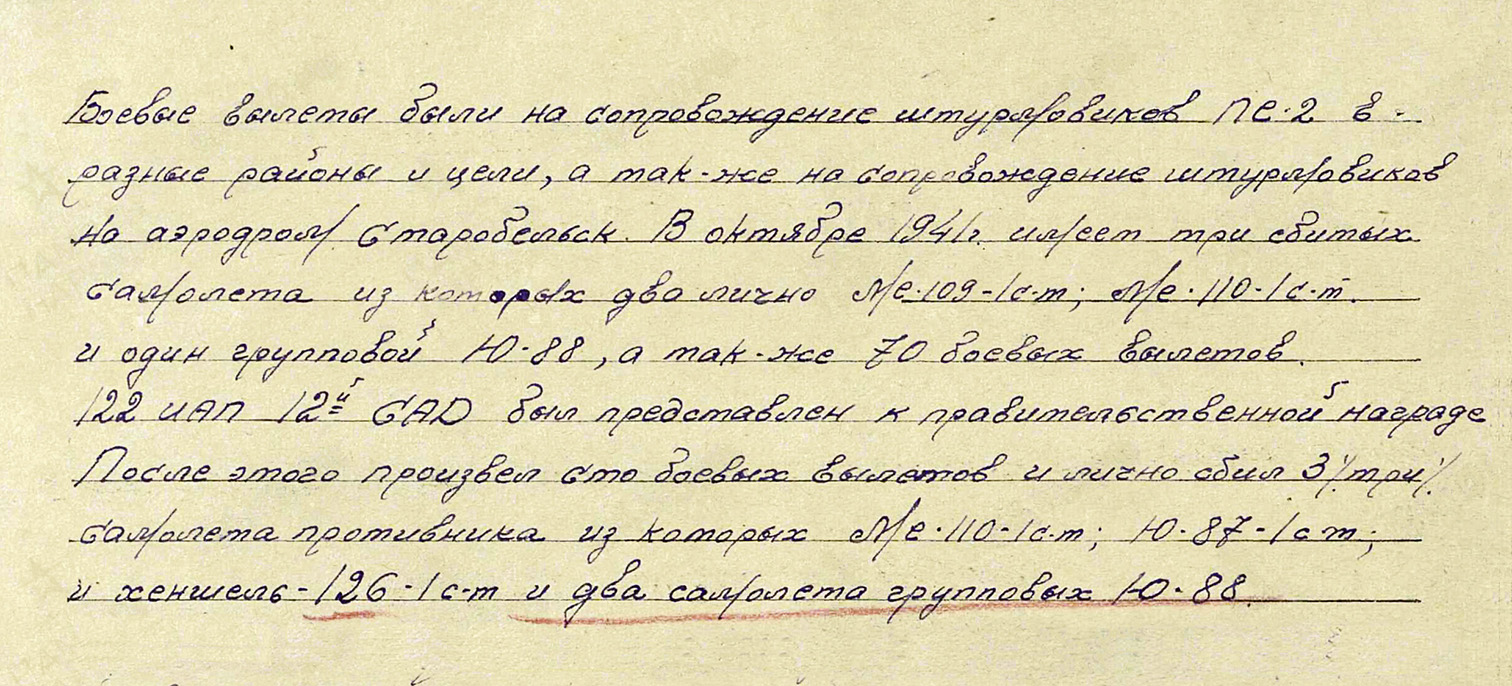 Боевые вылета были на сопровождение штурмовиков ПЕ-2 в
разные районы и цели, а так-же на сопровождение штурмовиков
на аэродром Старобельск. В октябре 1941г. имеет три сбитых
самолета из которых два лично Ме-109-1с-т; Ме-110-1с-т.
и один групповой Ю-88, а так-же 70 боевых вылетов.
122 ИАП 12й САД был представлен к правительственной награде
После этого произвел сто боевых вылетов и лично сбил 3 /три/.
самолета противника из которых Ме-110-1с-т; Ю-87-1с-т;
и хеншель-126-1с-т и два самолета групповых Ю-88.